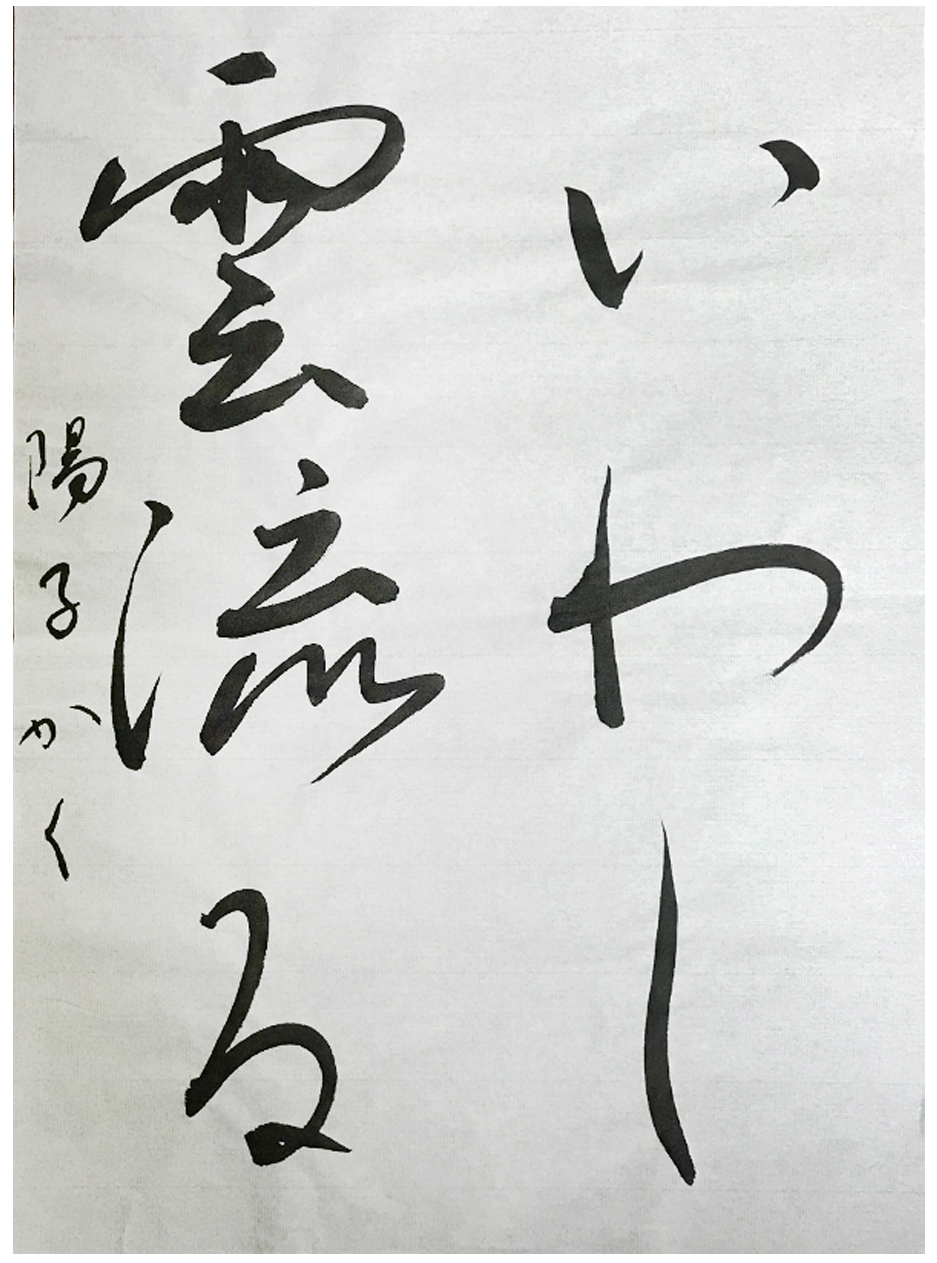 いわし
雲流る
陽子かく